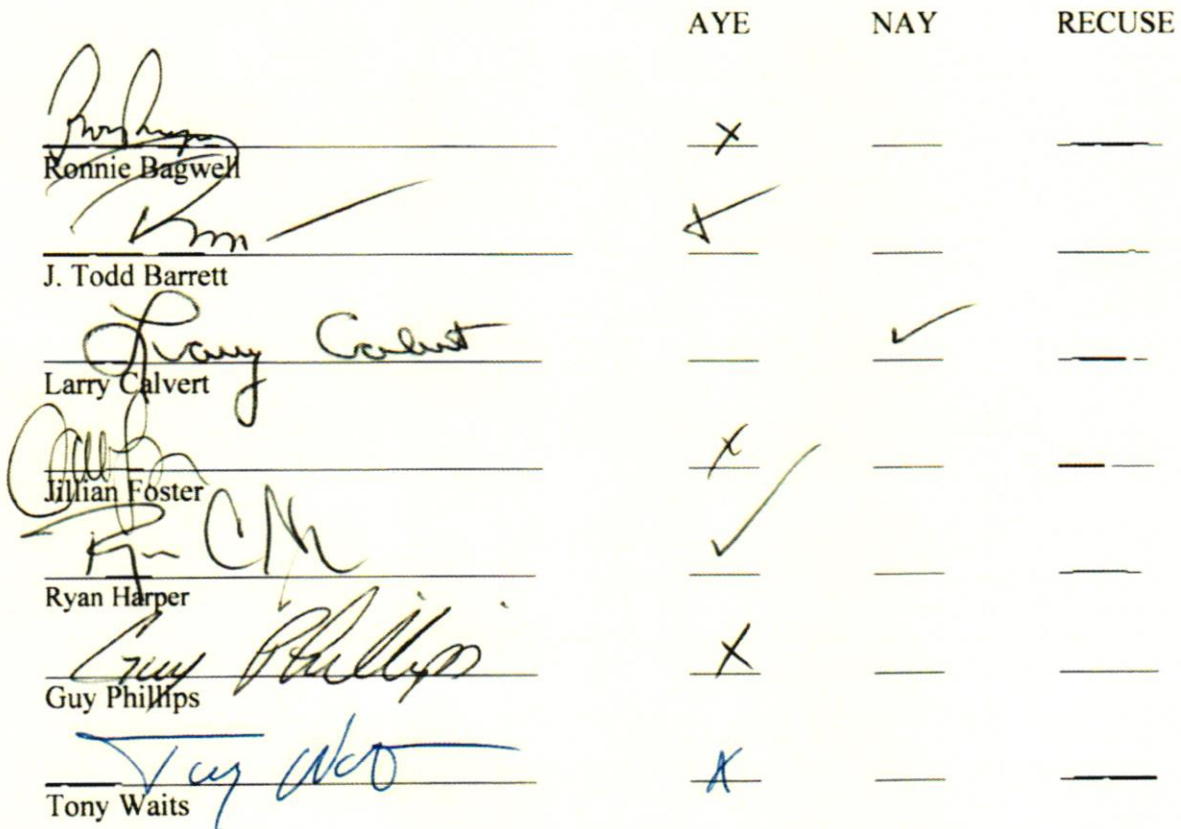 AYE NAY RECUSE
X
Ronnie Bagwell
✓
J. Todd Barrett
Larry Calvert ✓
Larry Calvert
X
Jillian Foster
✓
Ryan Harper
Guy Phillips X
Guy Phillips
X
Tony Waits